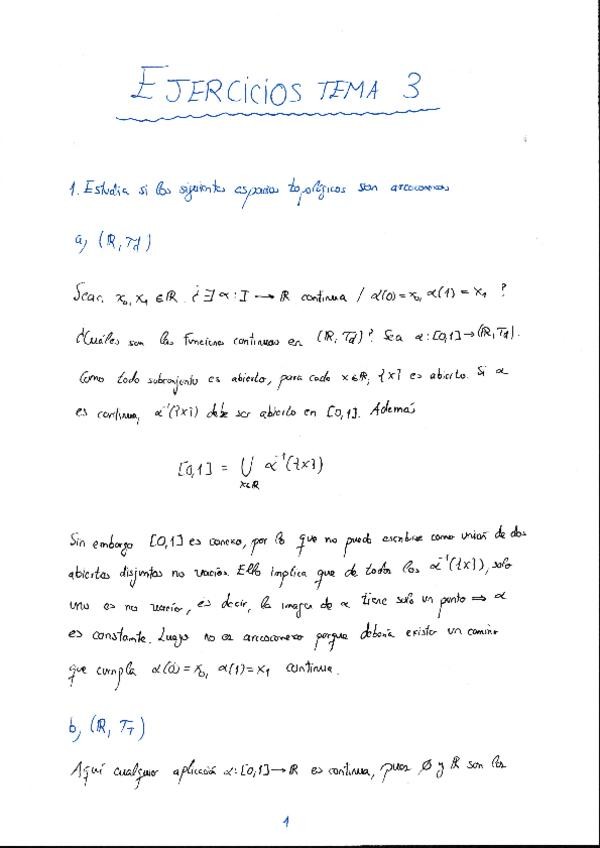 EJERCICIOS TEMA 3
1. Estudia si los siguientes espacios topológicos son arcoconexos
a) (ℝ, T_d)
Sean x₀, x₁ ∈ ℝ. ¿∃ α: I → ℝ continua / α(0) = x₀, α(1) = x₁ ?
¿Cuáles son las funciones continuas en (ℝ, T_d)? Sea α: [0,1] → (ℝ, T_d).
Como todo subconjunto es abierto, para cada x ∈ ℝ, {x} es abierto. Si α
es continua, α⁻¹({x}) debe ser abierto en [0,1]. Además
[0,1] = ⋃ α⁻¹({x})
x∈ℝ
Sin embargo [0,1] es conexo, por lo que no puede escribirse como unión de dos
abiertos disjuntos no vacíos. Ello implica que de todos los α⁻¹({x}), solo
uno es no vacío, es decir, la imagen de α tiene solo un punto ⇒ α
es constante. Luego no es arcoconexo porque debería existir un camino
que cumpla α(0) = x₀, α(1) = x₁ continua.
b) (ℝ, T_T)
Aquí cualquier aplicación α: [0,1] → ℝ es continua, pues ∅ y ℝ son los
1